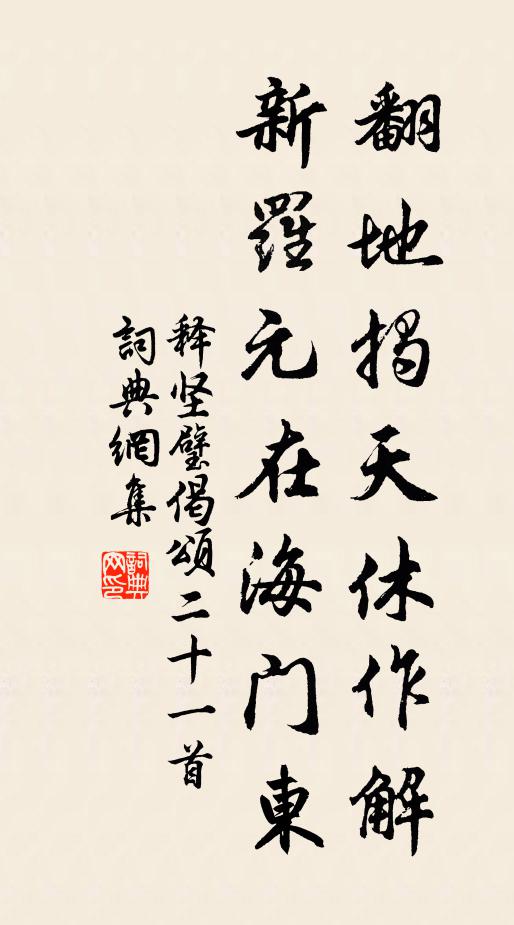 翻地揭天休作解
新羅元在海門東
释坚璧偈頌二十一首
詞典網集
詞典网印